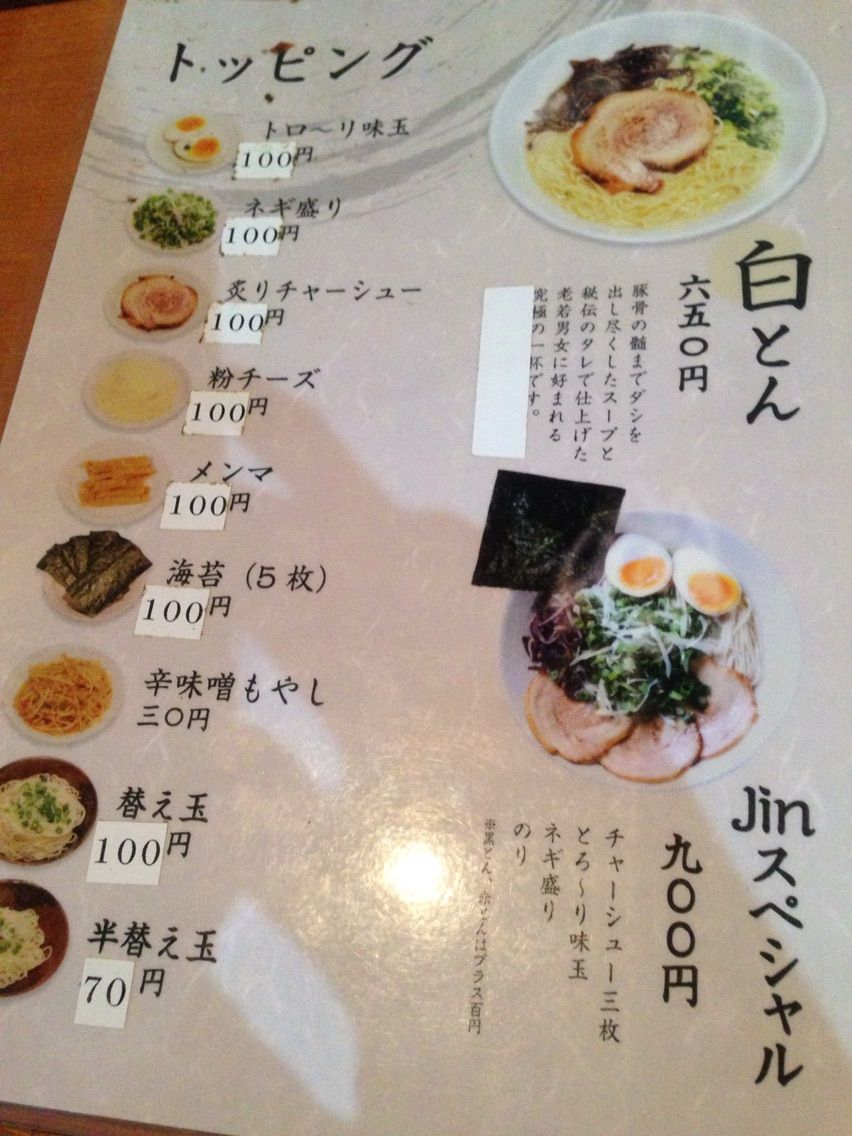 トッピング
トロ〜リ味玉
100円
ネギ盛り
100円
炙りチャーシュー
100円
粉チーズ
100円
メンマ
100円
海苔（5枚）
100円
辛味噌もやし
三〇円
替え玉
100円
半替え玉
70円
白とん
六五〇円
豚骨の髄までダシを
出し尽くしたスープと
秘伝のタレで仕上げた
老若男女に好まれる
究極の一杯です。
Jinスペシャル
九〇〇円
チャーシュー三枚
とろ〜り味玉
ネギ盛り
のり
※黒とん、赤とんはプラス百円